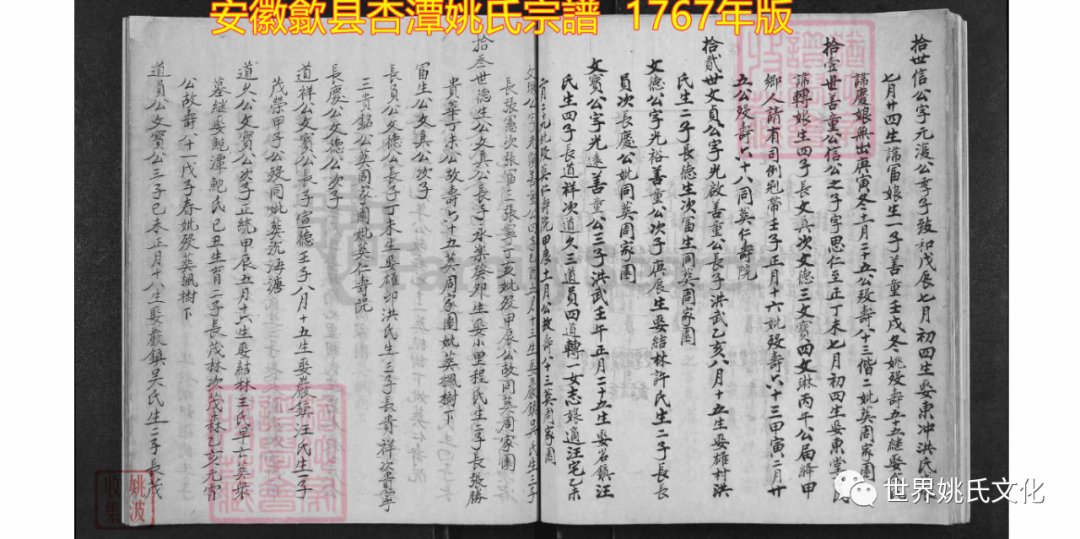 安徽歙县杏潭姚氏宗譜 1767年版
拾世信公字元濅公季子致和戊辰七月初四生娶東冲洪氏
七月廿四生諦富娘生一子善童壬戌冬姚殁壽五十五継娶
諦慶娘無出庚寅冬十一月二十五公殁壽八十三偕二妣葬周家園
拾壹世善童公信公之子字思仁至正丁未七月初四生娶東堂
諦轉娘生四子長文真次文德三文寶四文琳丙午公届絳甲
鄉人請有司例冠帶壬子正月十六妣殁壽六十三甲寅二月廿
五公殁壽六十八同葬仁壽院
拾貳世文貞公字光啟善童公長子洪武乙亥八月十五生娶雄村洪
氏生二子長德生次富生同葬周家園
文德公字光裕善童公次子庚辰生娶結林許氏生二子長長
員次長慶公妣同葬周家園
文寶公字光遠善童公三子洪武壬午正月二十五生娶岩鎮汪
氏生四子長道祥次道久三道員四道轉一女志娘適汪宅乙未
長張憲次張富三張寧丁亥妣殁甲辰公故同葬周家園
拾叁世德生公文真公長子永楽癸卯生娶小里程氏生二子長張勝
貴華丁未公故壽六十五葬周家園妣葬楓樹下
富生公文真公次子
長員公文德公長子丁未生娶雄邨洪氏生三子長貴祥次貴寧
三貴銘公葬周家園妣葬仁壽院
長慶公文德公次子
道祥公文寶公長子宣德壬子八月十五生娶嚴鎮汪氏生一子
茂榮甲子公殁同妣葬沉海灣
道久公文寶公次子正統甲辰五月十六生娶結林王氏早亡葬衆
墓継娶鮑潭鮑氏己丑生育二子長茂林次茂森乙亥元宵
公故壽八十一戊子春妣殁葬楓樹下
道員公文寶公三子己未正月十八生娶嚴鎮吴氏生二子長茂
姚波
收集
世界姚氏文化